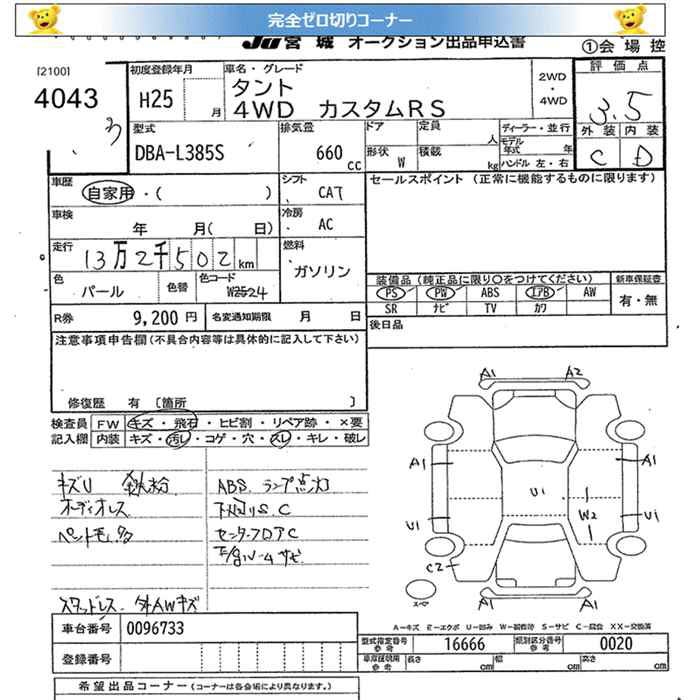 完全ゼロ切りコーナー
JU宮城 オークション出品申込書
①会場控
[2100]
4043
初度登録年月
H25 月
車名・グレード
タント
4WD カスタムRS
2WD・4WD
評価点
3.5
外装 内装
C D
型式
DBA-L385S
排気量
660 cc
ドア 定員 人
形状 W 積載 kg
ディーラー・並行
モデル年式 年
ハンドル 左・右
車歴
自家用・( )
シフト
CAT
セールスポイント (正常に機能するものに限ります)
車検 年 月( 日)
冷房
AC
走行
13万2千502km
燃料
ガソリン
色
パール
色替
色コード
W2524
装備品 (純正品に限り〇をつけてください)
PS PW ABS エアB AW
SR ナビ TV カワ
新車保証書
有・無
R券 9,200円
名変通知期限 月 日
後日品
注意事項申告欄(不具合内容等は具体的に記入して下さい)
修復歴 有 [箇所 ]
検査員記入欄
FW キズ・飛石・ヒビ割・リペア跡・×要
内装 キズ・汚レ・コゲ・穴・スレ・キレ・破レ
キズU 鉄粉
オーディオレス
ペイントモレ多
スタッドレス. 外AWキズ
ABS ランプ点灯
下回りS C
センターフロアC
E/gルーム サビ
A1 A2
A1 A1
U1
W2
U1 U1
C2
A1 A1
スペア
A-キズ E-エクボ U-凹み W-補修跡 S-サビ C-腐食 XX-交換済
車台番号 0096733
登録番号
型式指定番号 参考 16666
類別区分番号 参考 0020
車庫証明用 参考 長さ cm 幅 cm 高さ cm
希望出品コーナー (コーナーは各会場により異なります。)